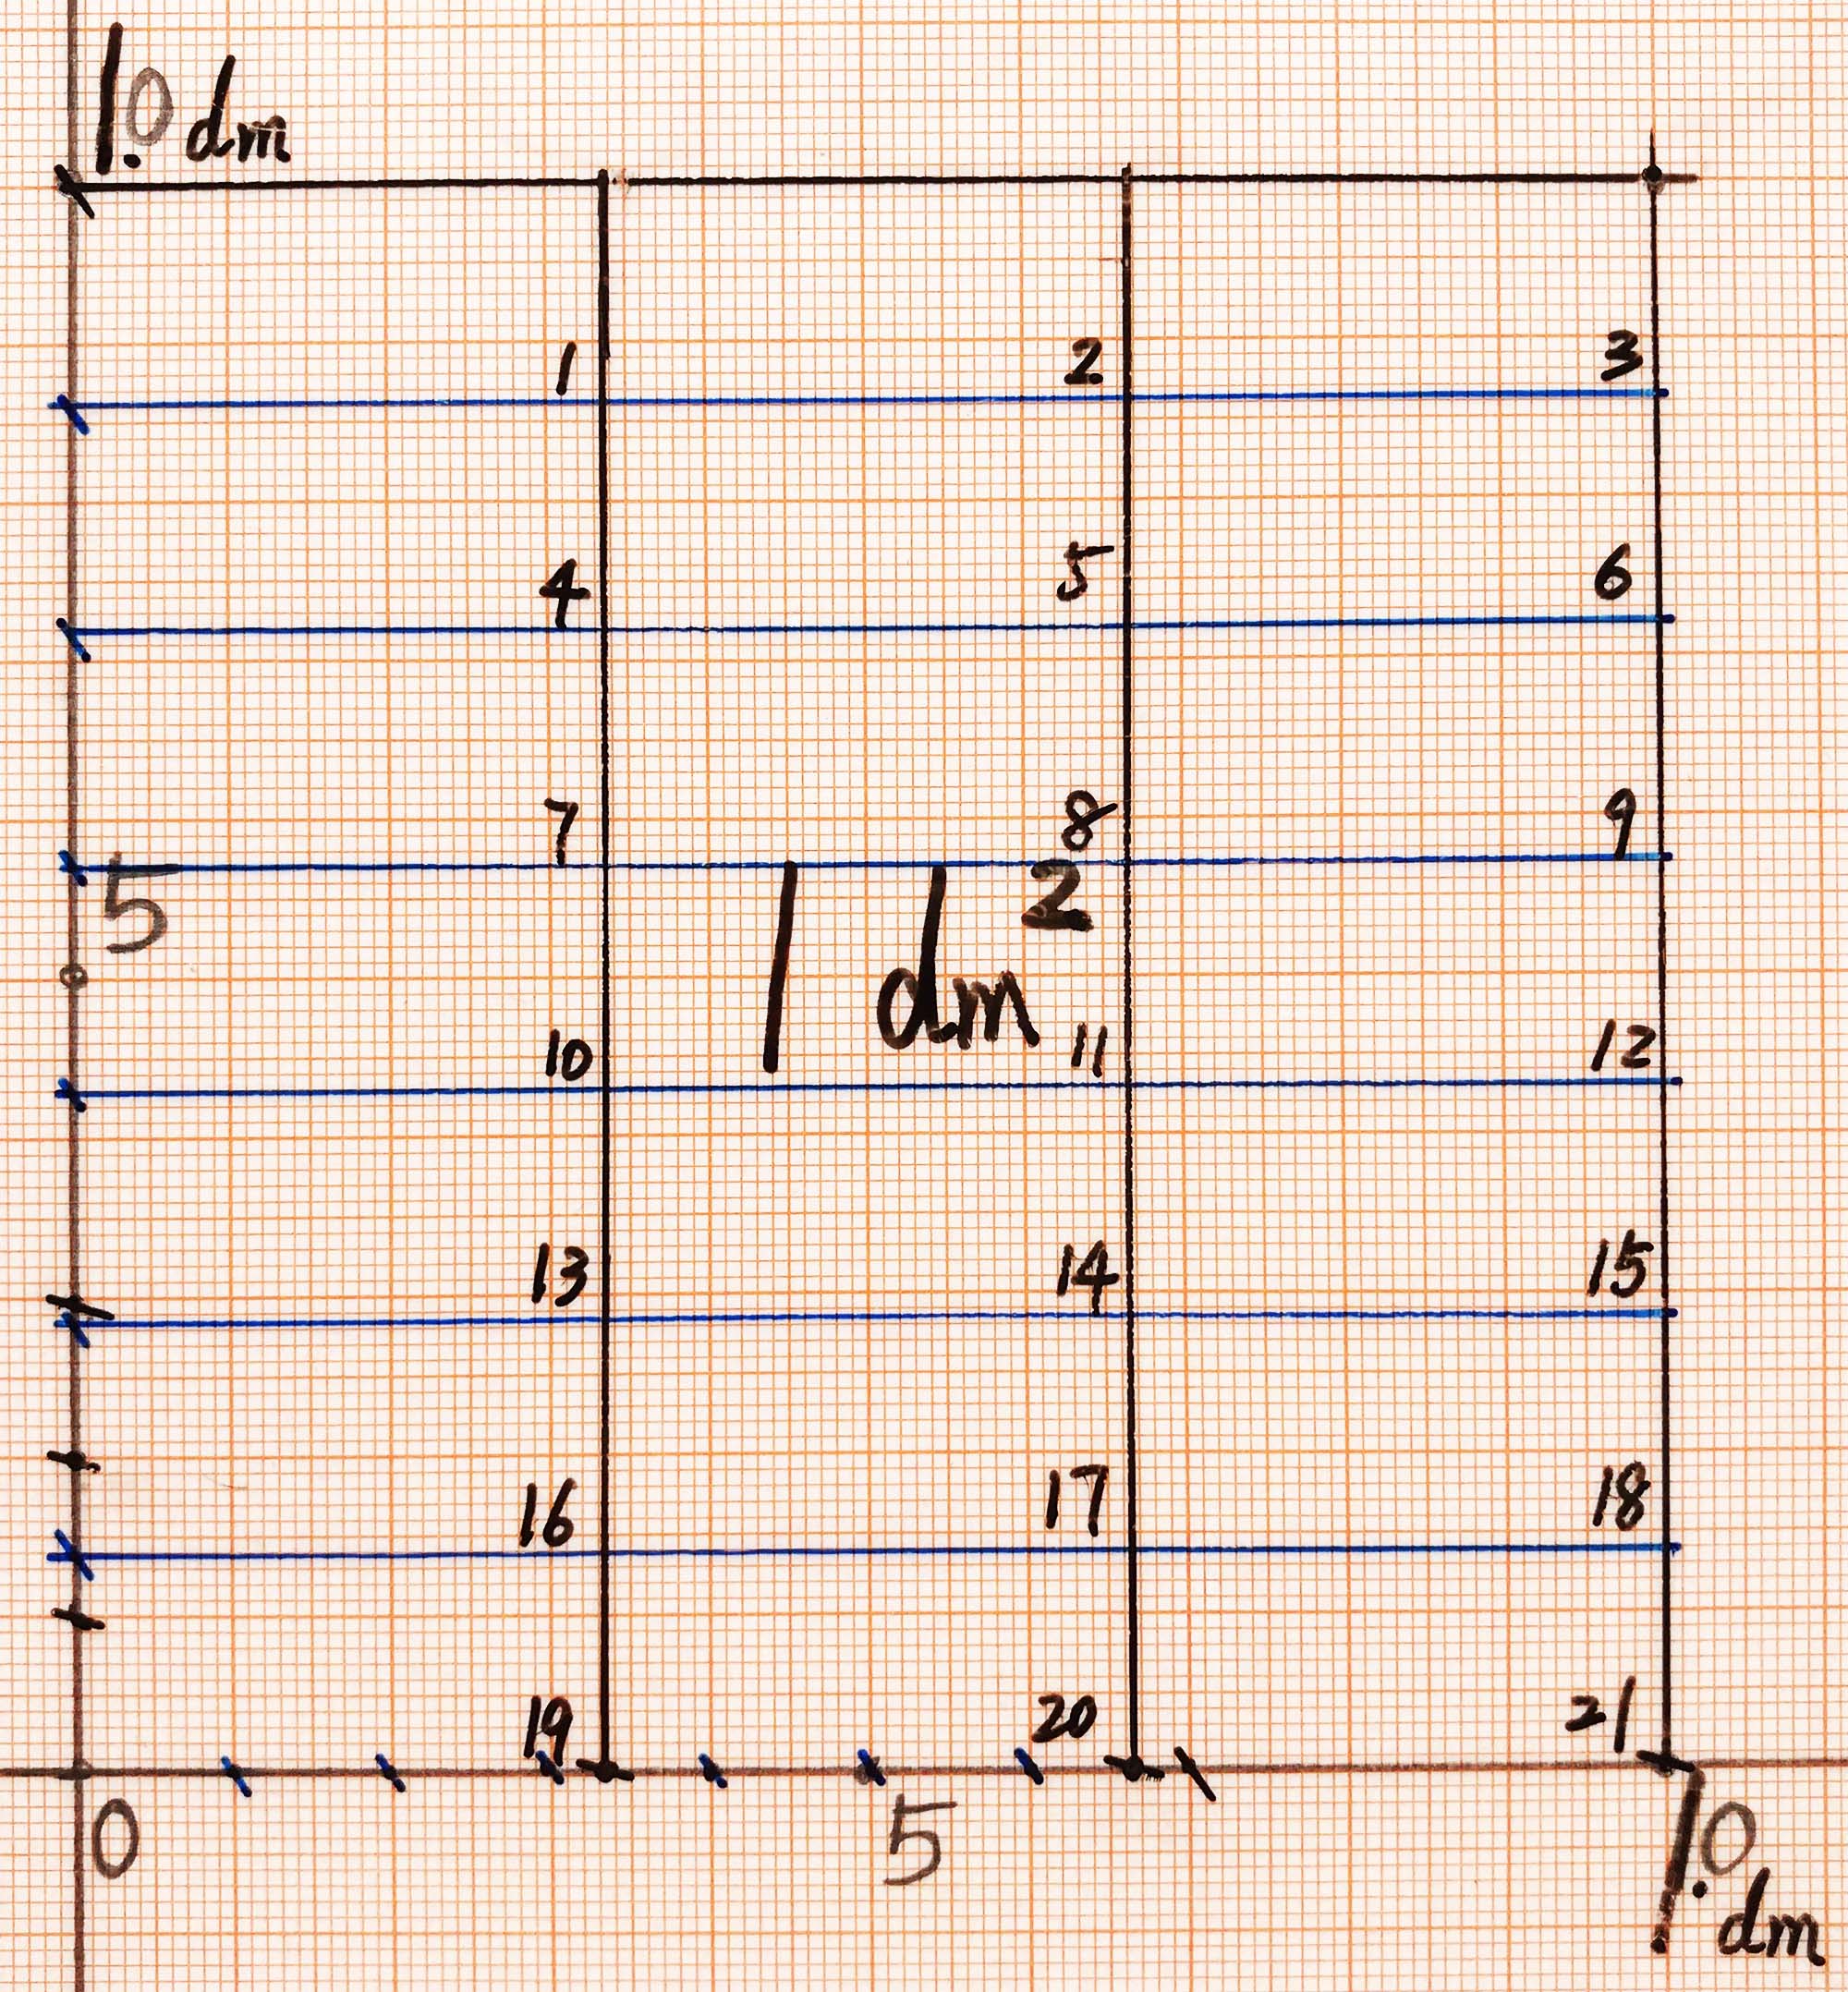 1.0 dm
1 2 3
4 5 6
7 8 9
5
1 dm²
10 11 12
13 14 15
16 17 18
19 20 21
0 5 1.0
dm